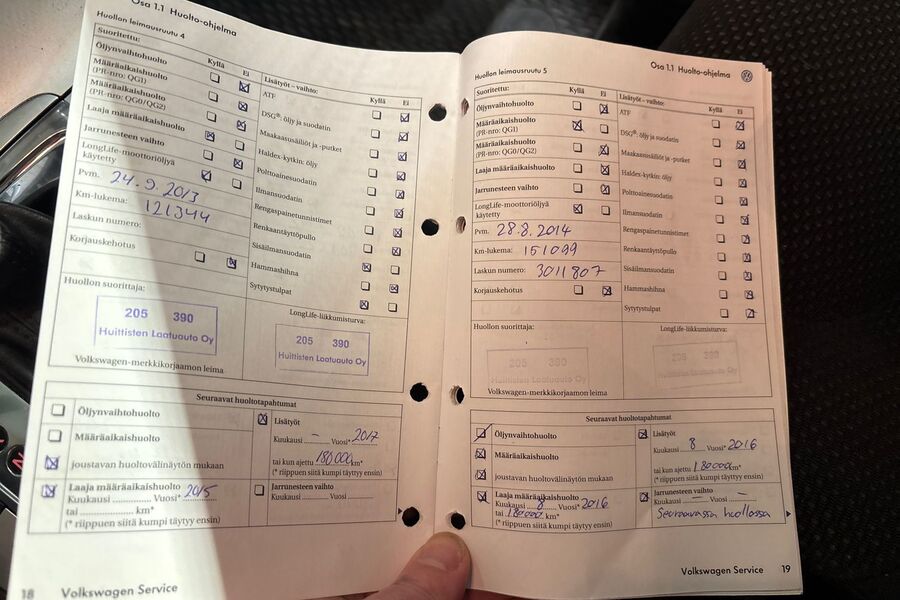 Osa 1.1 Huolto-ohjelma
Huollon leimausruutu 4
Suoritettu: Kyllä Ei
Öljynvaihtohuolto
Määräaikaishuolto
(PR-nro: QG1)
Määräaikaishuolto
(PR-nro: QG0/QG2)
Laaja määräaikaishuolto
Jarrunesteen vaihto
LongLife-moottoriöljyä
käytetty
Pvm. 24.9.2013
Km-lukema: 121344
Laskun numero:
Korjauskehotus
Lisätyöt – vaihto: Kyllä Ei
ATF
DSG®: öljy ja suodatin
Maakaasusäiliöt ja -putket
Haldex-kytkin: öljy
Polttoainesuodatin
Ilmansuodatin
Rengaspainetunnistimet
Renkaantäyttöpullo
Sisäilmansuodatin
Hammashihna
Sytytystulpat
Huollon suorittaja:
205 390
Huittisten Laatuauto Oy
Volkswagen-merkkikorjaamon leima
LongLife-liikkumisturva:
205 390
Huittisten Laatuauto Oy
Seuraavat huoltotapahtumat
Öljynvaihtohuolto
Määräaikaishuolto
joustavan huoltovälinäytön mukaan
Laaja määräaikaishuolto
Kuukausi Vuosi* 2015
tai km*
(* riippuen siitä kumpi täytyy ensin)
Lisätyöt
Kuukausi – Vuosi* 2017
tai kun ajettu 180000 km*
(* riippuen siitä kumpi täytyy ensin)
Jarrunesteen vaihto
Kuukausi Vuosi
18 Volkswagen Service
Osa 1.1 Huolto-ohjelma
Huollon leimausruutu 5
Suoritettu: Kyllä Ei
Öljynvaihtohuolto
Määräaikaishuolto
(PR-nro: QG1)
Määräaikaishuolto
(PR-nro: QG0/QG2)
Laaja määräaikaishuolto
Jarrunesteen vaihto
LongLife-moottoriöljyä
käytetty
Pvm. 28.8.2014
Km-lukema: 151099
Laskun numero: 3011807
Korjauskehotus
Lisätyöt – vaihto: Kyllä Ei
ATF
DSG®: öljy ja suodatin
Maakaasusäiliöt ja -putket
Haldex-kytkin: öljy
Polttoainesuodatin
Ilmansuodatin
Rengaspainetunnistimet
Renkaantäyttöpullo
Sisäilmansuodatin
Hammashihna
Sytytystulpat
Huollon suorittaja:
205 390
Huittisten Laatuauto Oy
Volkswagen-merkkikorjaamon leima
LongLife-liikkumisturva:
205 390
Huittisten Laatuauto Oy
Seuraavat huoltotapahtumat
Öljynvaihtohuolto
Määräaikaishuolto
joustavan huoltovälinäytön mukaan
Laaja määräaikaishuolto
Kuukausi 8 Vuosi* 2016
tai 180000 km*
(* riippuen siitä kumpi täytyy ensin)
Lisätyöt
Kuukausi 8 Vuosi* 2016
tai kun ajettu 180000 km*
(* riippuen siitä kumpi täytyy ensin)
Jarrunesteen vaihto
Kuukausi – Vuosi –
Seuraavassa huollossa
Volkswagen Service 19